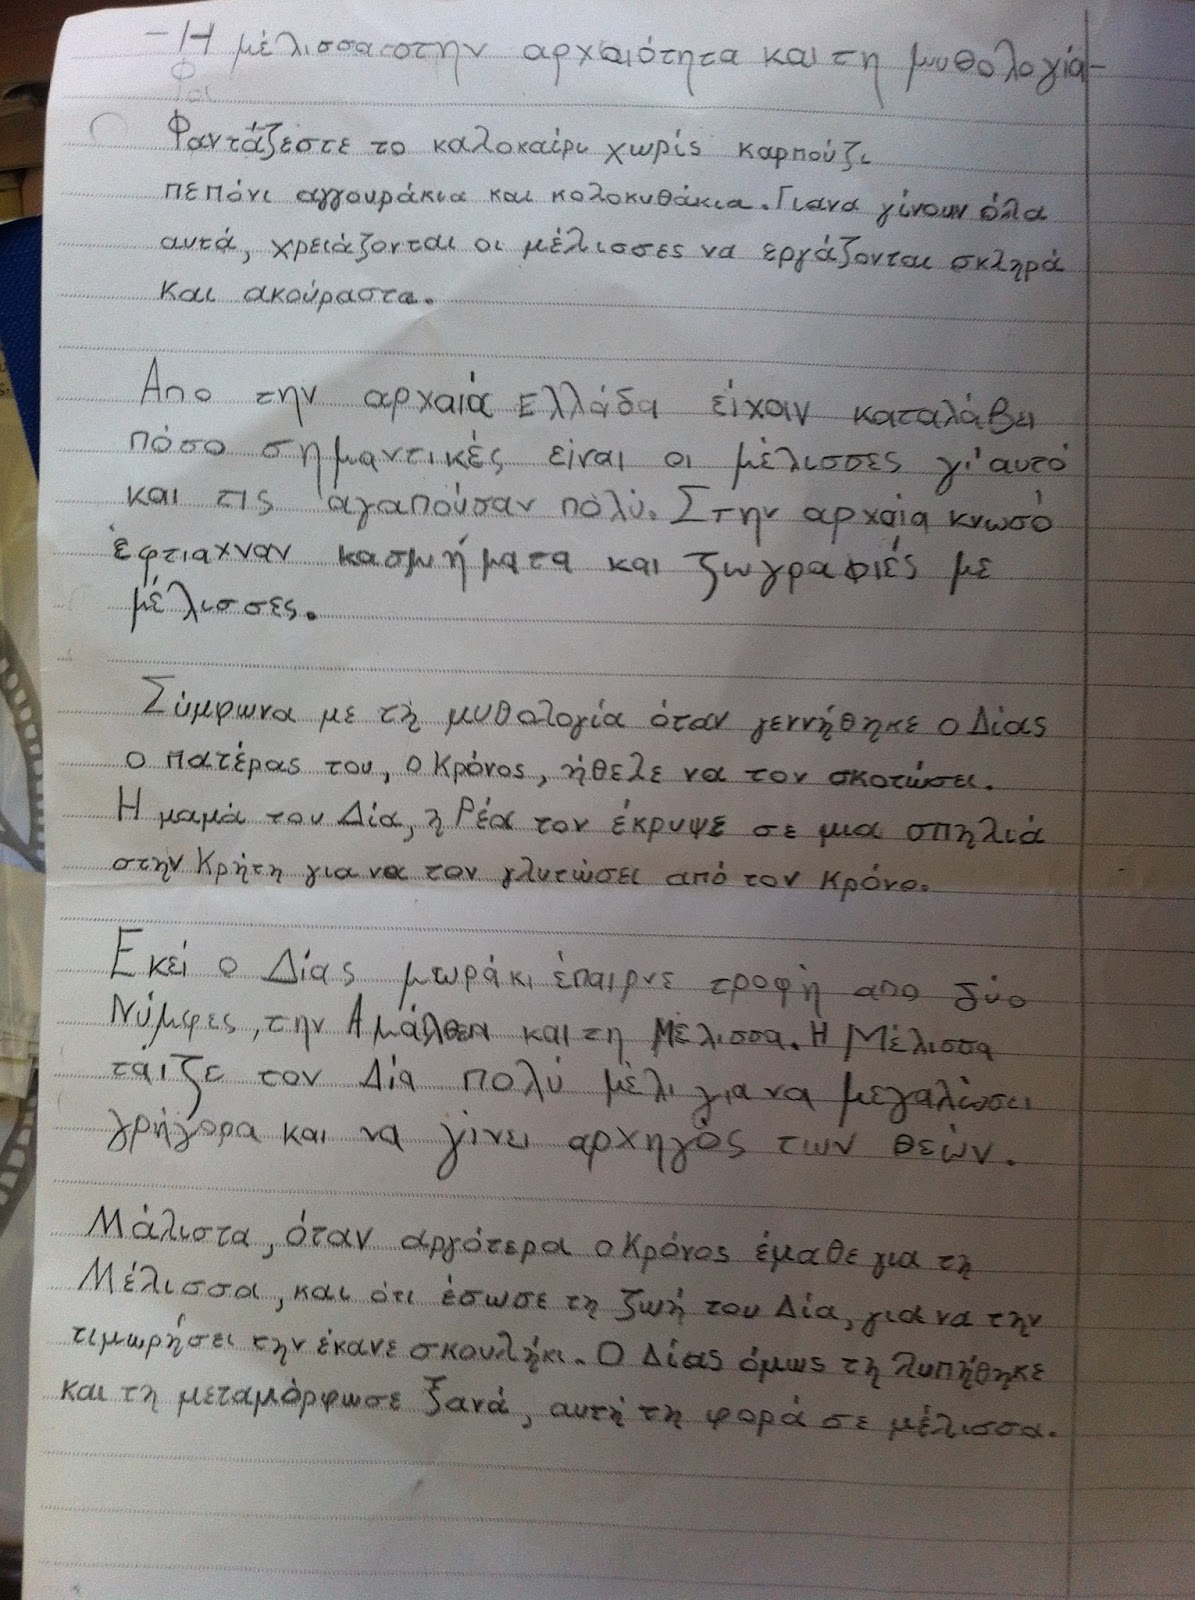 -Η μέλισσα στην αρχαιότητα και τη μυθολογία-
Φαντάζεστε το καλοκαίρι χωρίς καρπούζι
πεπόνι αγγουράκια και κολοκυθάκια. Για να γίνουν όλα
αυτά, χρειάζονται οι μέλισσες να εργάζονται σκληρά
και ακούραστα.
Απο την αρχαιά Ελλάδα είχαν καταλάβει
πόσο σημαντικές είναι οι μέλισσες γι'αυτό
και τις αγαπούσαν πολύ. Στην αρχαία κνωσό
έφτιαχναν κασμήματα και ζωγραφιές με
μέλισσες.
Σύμφωνα με τη μυθολογία όταν γεννήθηκε ο Δίας
ο πατέρας του, ο Κρόνος, ήθελε να τον σκοτώσει.
Η μαμά του Δία, η Ρέα τον έκρυψε σε μια σπηλιά
στην Κρήτη για να τον γλυτώσει από τον Κρόνο.
Εκεί ο Δίας μωράκι έπαιρνε τροφή απο δύο
Νύμφες, την Αμάλθεα και τη Μέλισσα. Η Μέλισσα
τάιζε τον Δία πολύ μέλι για να μεγαλώσει
γρήγορα και να γίνει αρχηγός των θεών.
Μάλιστα, όταν αργότερα ο Κρόνος έμαθε για τη
Μέλισσα, και ότι έσωσε τη ζωή του Δία, για να την
τιμωρήσει την έκανε σκουλήκι. Ο Δίας όμως τη λυπήθηκε
και τη μεταμόρφωσε ξανά, αυτή τη φορά σε μέλισσα.